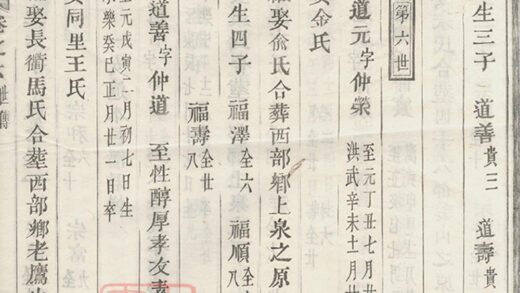 生三子 道善貴三 道壽貴
第六世
道元字仲榮 至元丁丑七月廿
洪武辛未十月廿
金氏
娶俞氏合葬西部鄉上泉之原
生四子 福澤全六 福順全八
福壽全廿八
道善字仲道 至性醇厚孝友素
至元戊寅二月初七日生
永樂癸巳正月廿一日卒
同里王氏
娶長衢馬氏合葬西部鄉老鷹
卷之 世傳